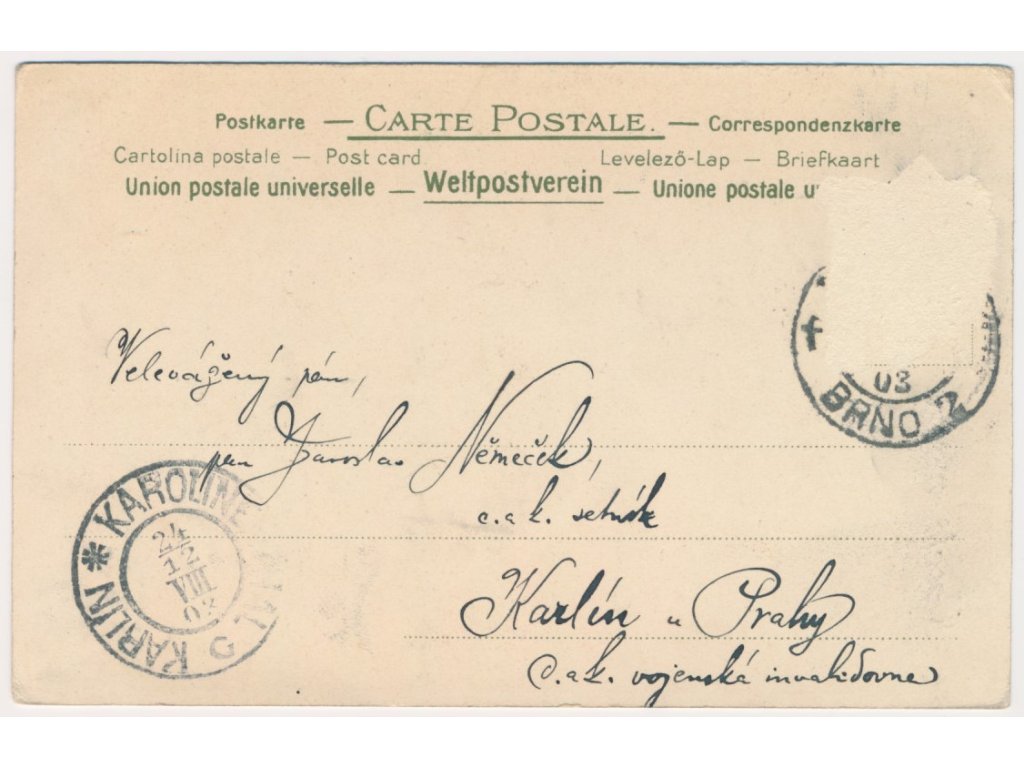 Postkarte — CARTE POSTALE. — Correspondenzkarte
Cartolina postale — Post card Levelező-Lap — Briefkaart
Union postale universelle — Weltpostverein — Unione postale u
03
BRNO 2
Velevážený pán,
pan Jaroslav Němeček,
c. a k. setník
Karlín u Prahy
c. a k. vojenská invalidovna
KARLIN * KAROLINE
24
12
VIII
03